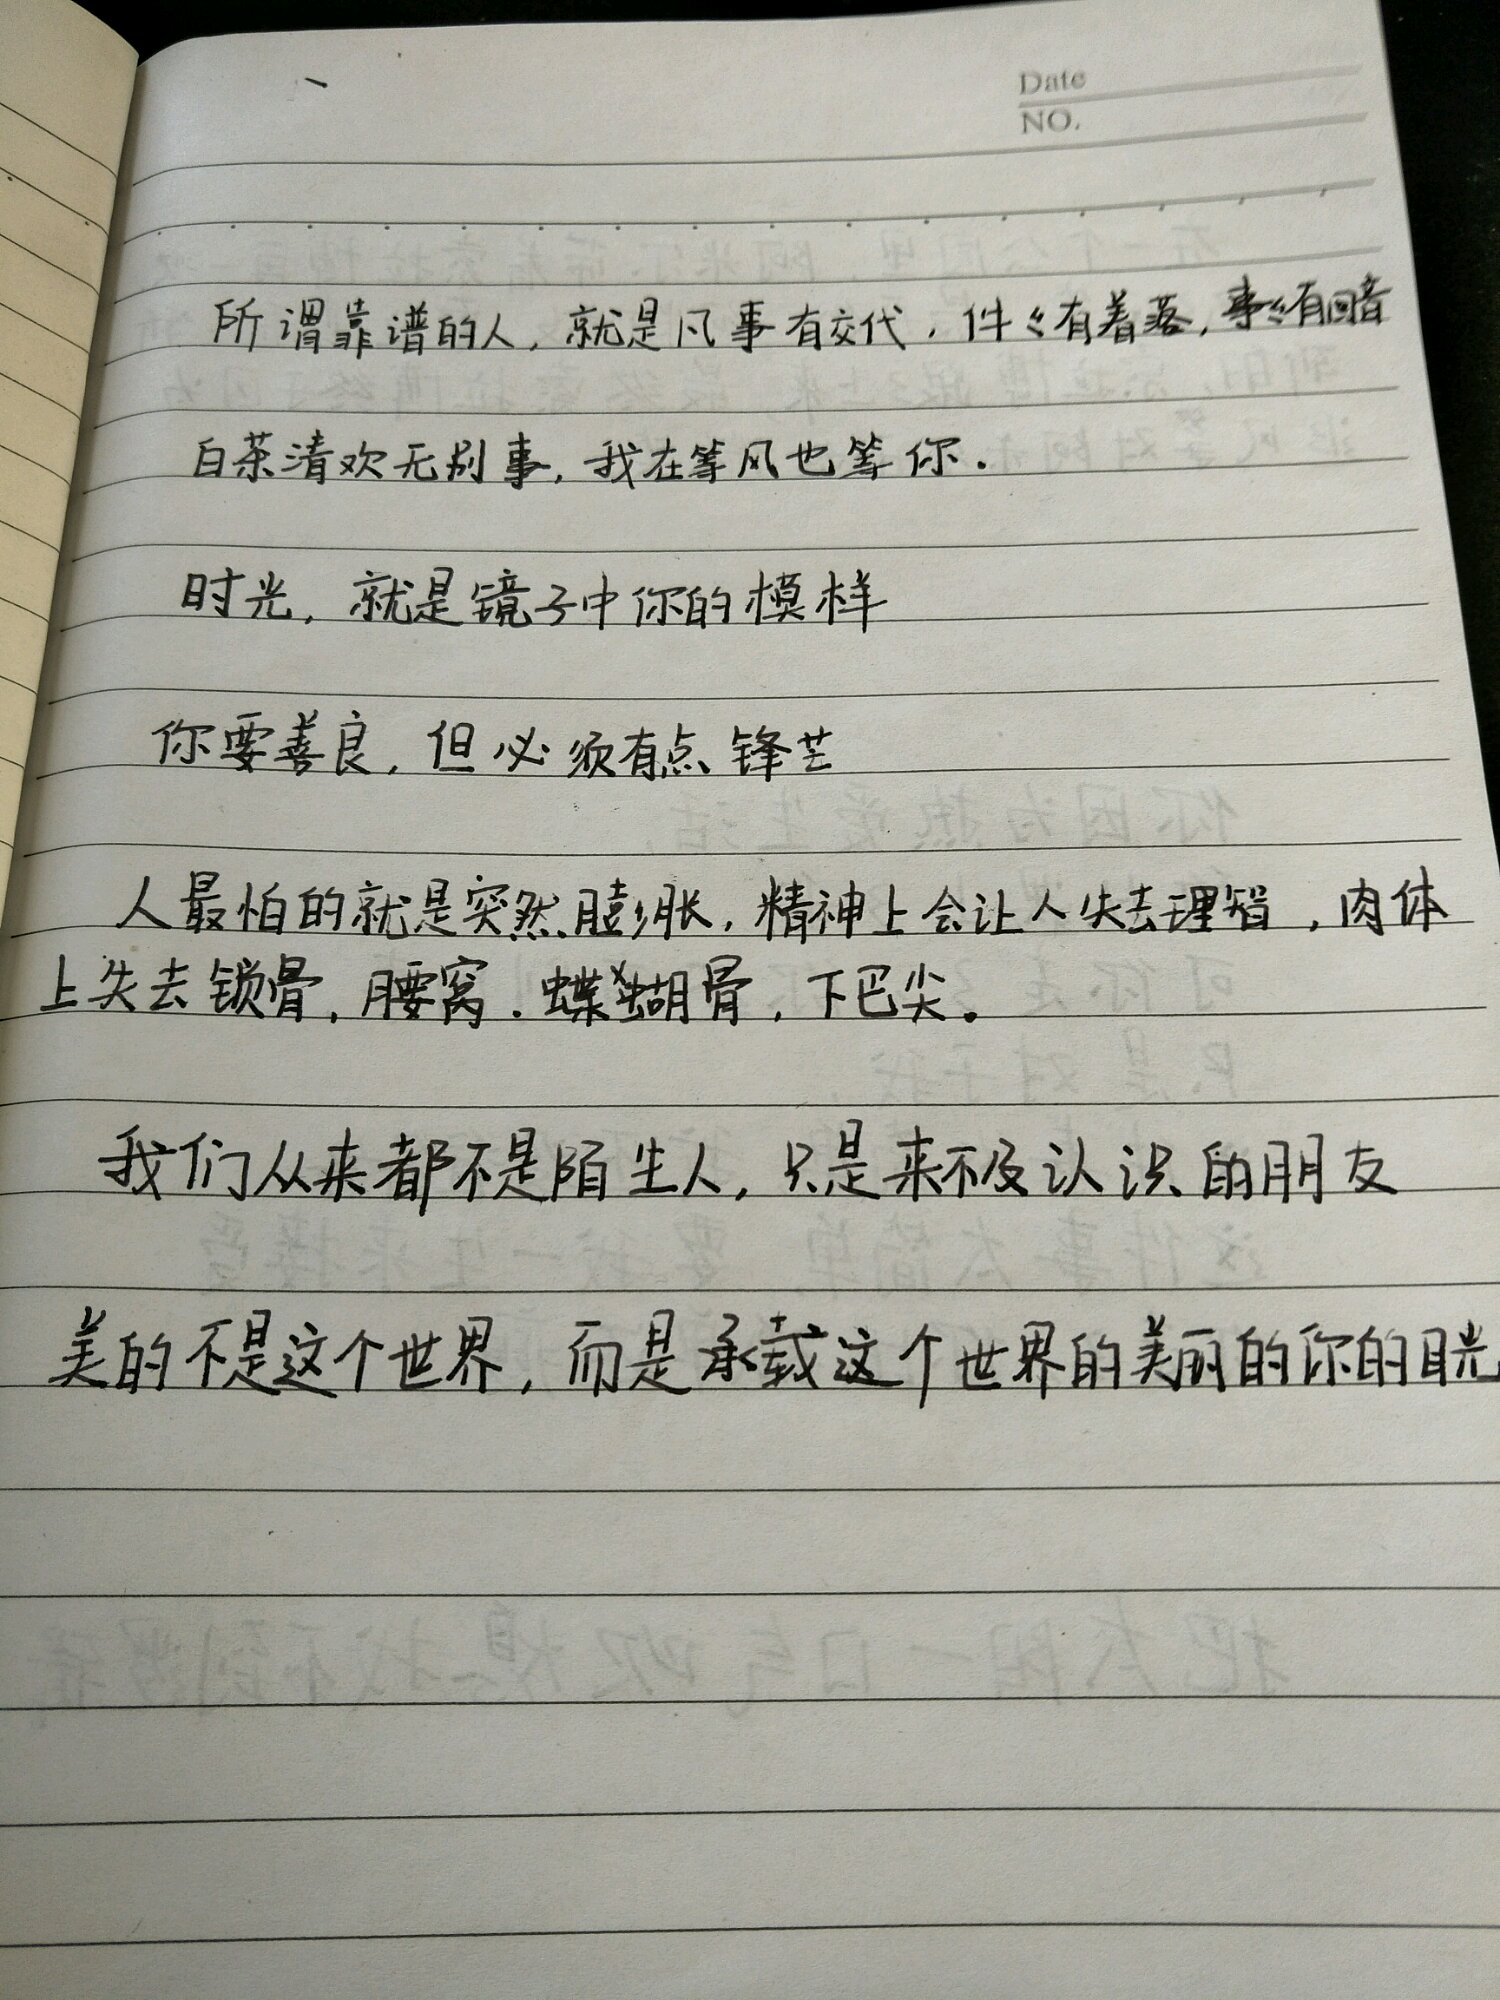 Date
NO.
所谓靠谱的人，就是凡事有交代，件々有着落，事々有回音
白茶清欢无别事，我在等风也等你.
时光，就是镜子中你的模样
你要善良，但必须有点锋芒
人最怕的就是突然膨胀，精神上会让人失去理智，肉体
上失去锁骨，腰窝.蝶蝴骨，下巴尖。
我们从来都不是陌生人，只是来不及认识的朋友
美的不是这个世界，而是承载这个世界的美丽的你的目光